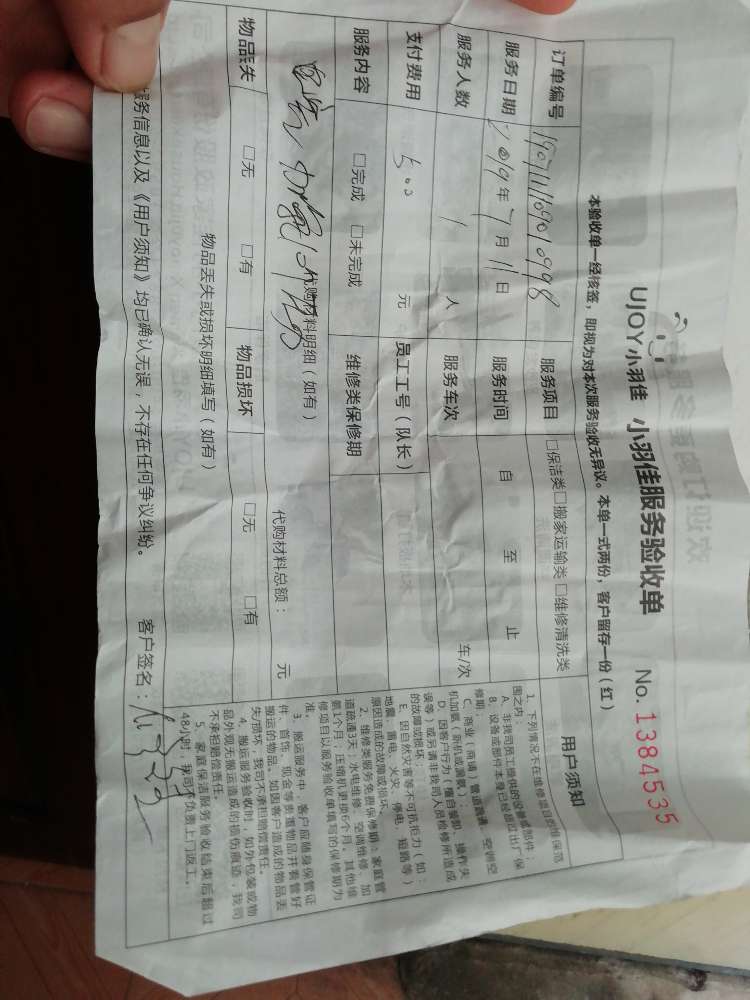 UJOY小羽佳 小羽佳服务验收单 No. 1384535
本验收单一经核签，即视为对本次服务验收无异议。本单一式两份，客户留存一份（红）
订单编号 服务项目 □保洁类□搬家运输类□维修清洗类
服务日期 2019年7月11日 服务时间 自 至 止
服务人数 1 人 服务车次 车/次
支付费用 600 元 员工工号（队长）
服务内容 □完成 □未完成 维修类保修期
代购材料明细（如有） 代购材料总额： 元
物品丢失 □无 □有 物品损坏 □无 □有
物品丢失或损坏明细填写（如有）
服务信息以及《用户须知》均已确认无误，不存在任何争议纠纷。 客户签名：
用户须知
1、下列情况不在维修项目的维保范
围之内：
A、非我司员工提供的设备或部件
B、设备或部件本身已经超过出厂保
修期；
C、商业（商铺）管道疏通、空调空
机加氨、新机或漏氨）；
D、因客户行为（擅自装卸、操作失
误等）或另请非我司人员检修所造成
的故障或损坏；
E、因自然灾害等不可抗拒力（如：
地震、雷电、火灾、停电、短路等）
原因造成的故障或损坏。
2、维修类服务免费保修期：家庭管
道疏通3天；水电维修、空调维修、加
氨1个月；压缩机更换6个月。其他维
修项目以服务验收单填写的保修期为
准。
3、搬运服务中，客户应随身保管证
件、首饰、现金等贵重物品并看管好
搬运的物品。如因客户造成的物品丢
失/损坏，我司不承担赔偿责任。
4、搬运服务验收时，如外包装或物
品外观无搬运造成的损伤痕迹，我司
不承担赔偿责任。
5、家庭保洁服务验收结束后超过
48小时，我司不负责上门返工。